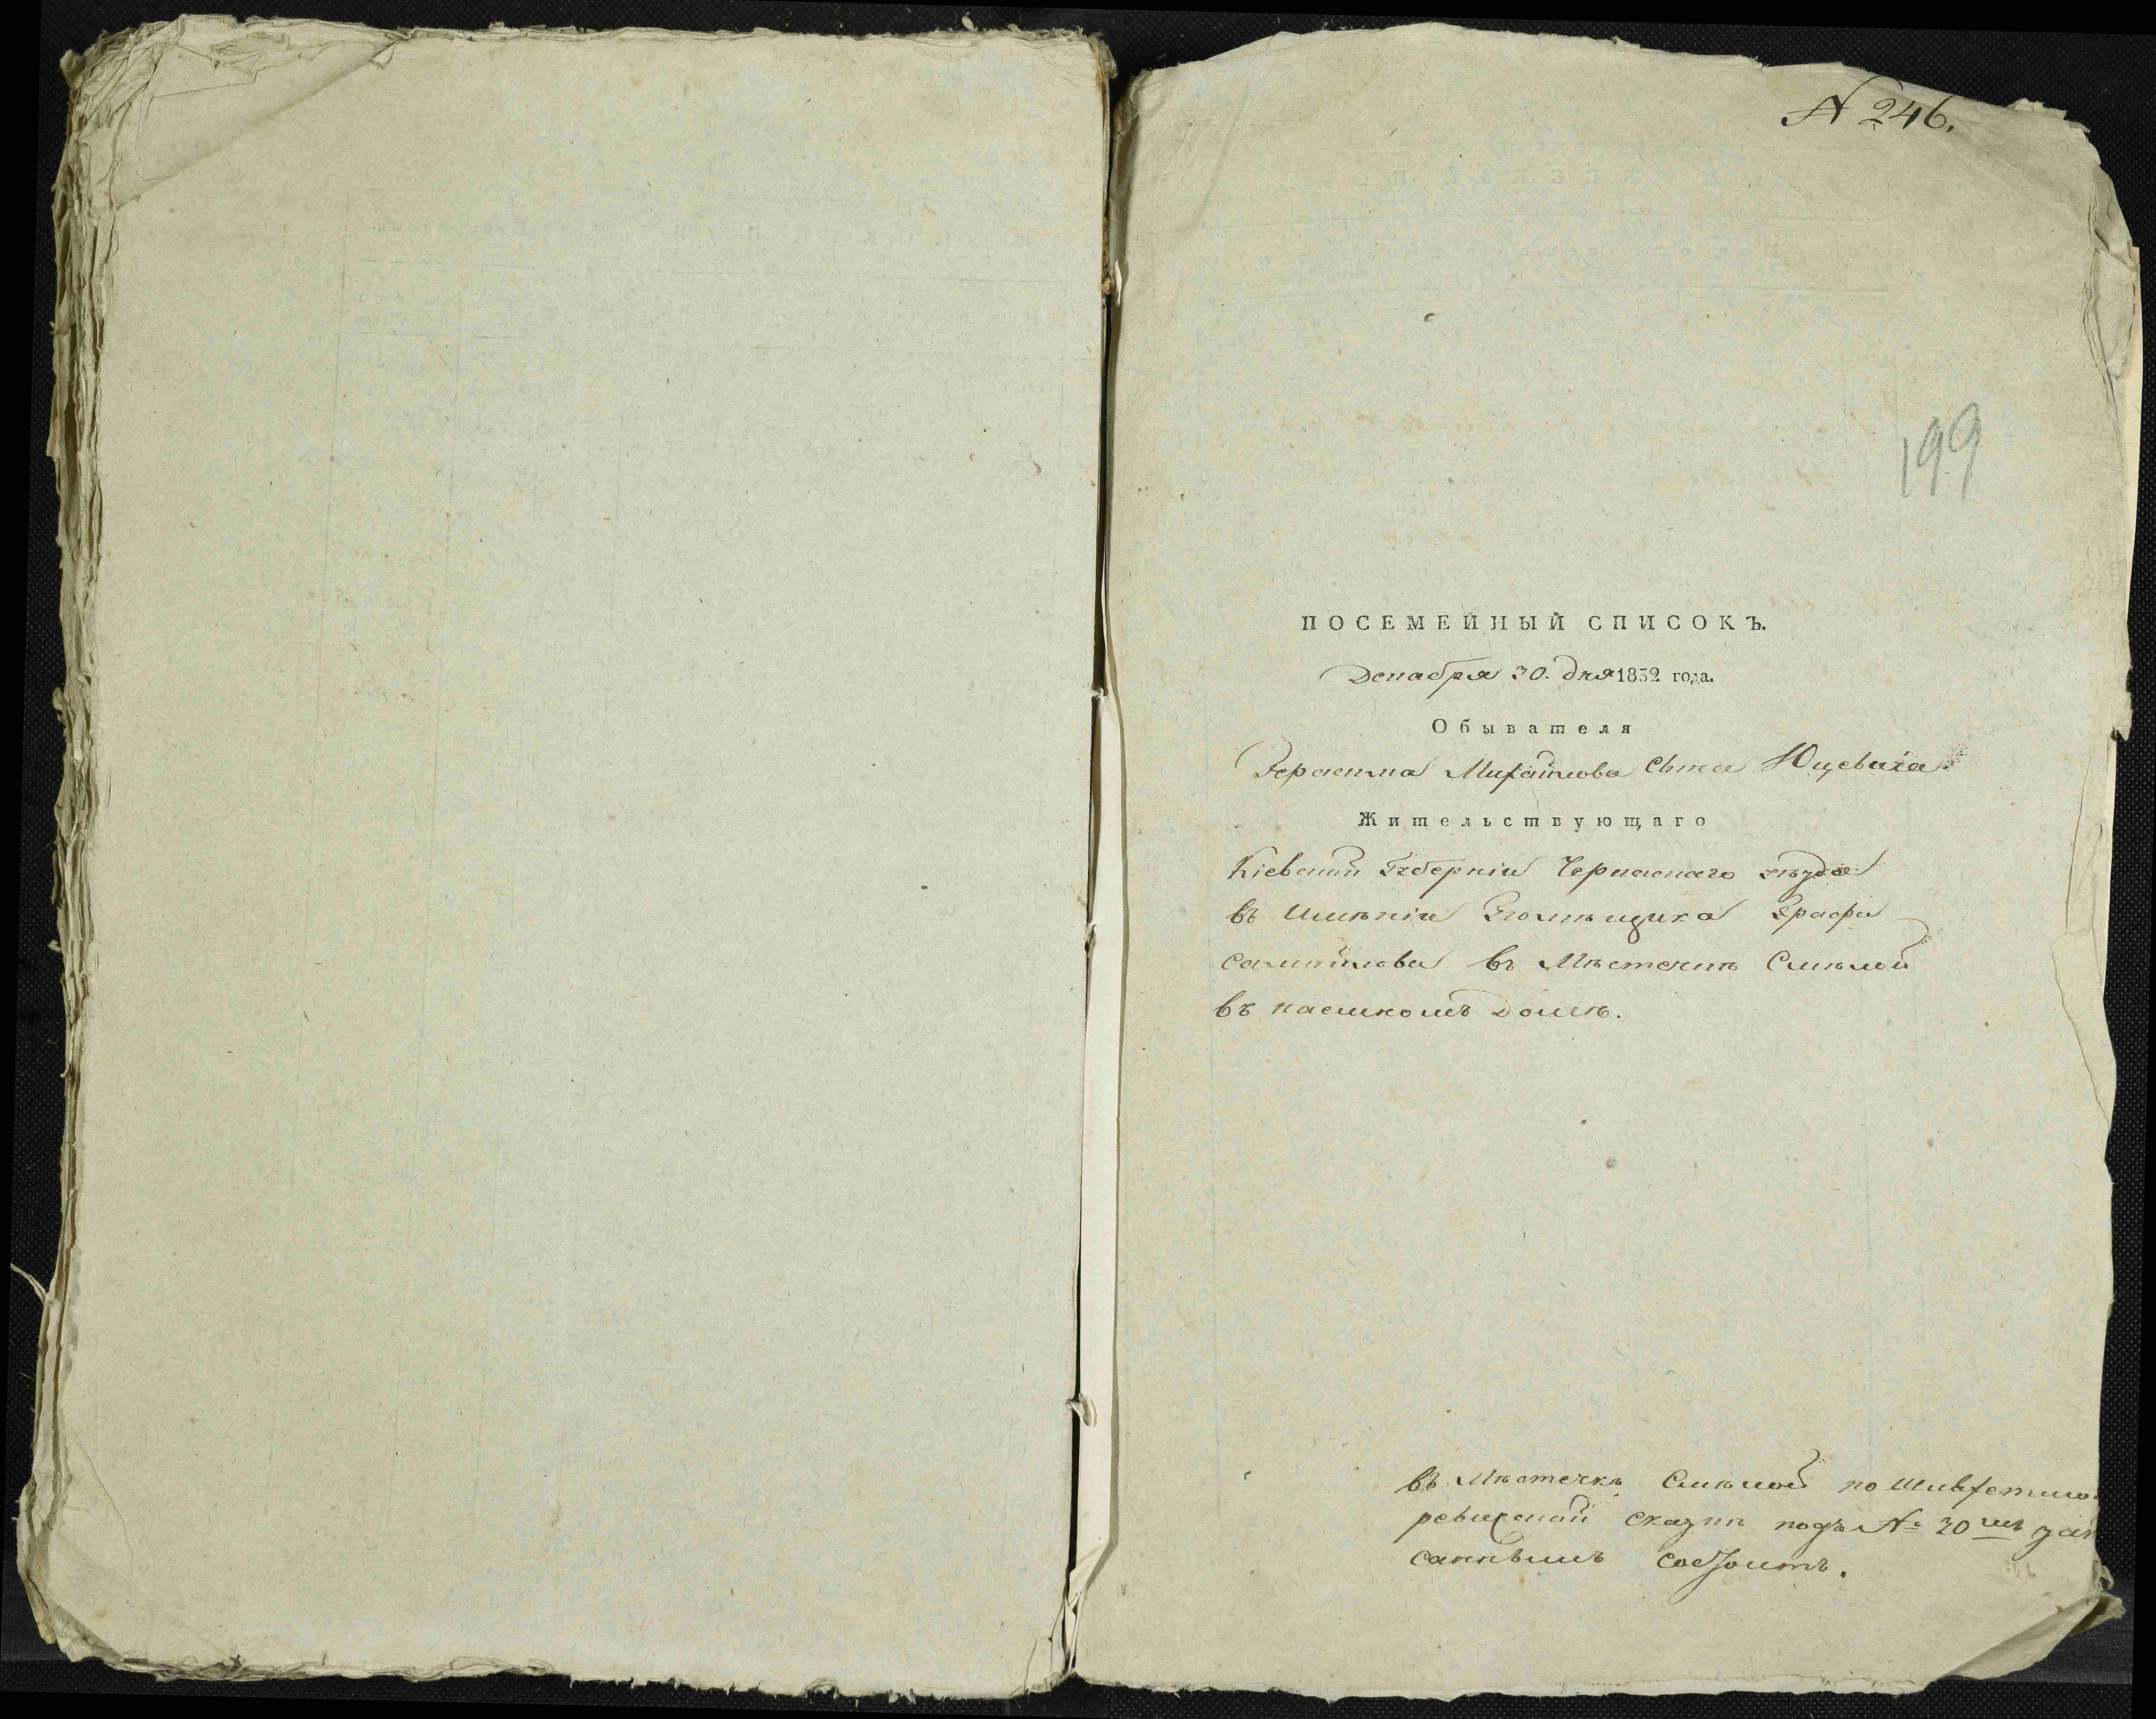 № 246.
199
ПОСЕМЕЙНЫЙ СПИСОКЪ.
Декабря 30. дня 1832 года.
Обывателя
Герасима Михайлова сына Юцевича
Жительствующаго
Кіевской Губерніи Черкаскаго уѣзда
въ имѣніи Помѣщика Графа
Самойлова въ Мѣстечкѣ Смѣлой
въ наемномъ домѣ.
въ Мѣстечкѣ Смѣлой по Шляхетско
ревизской сказкѣ подъ № 20мъ зап
саннымъ состоитъ.